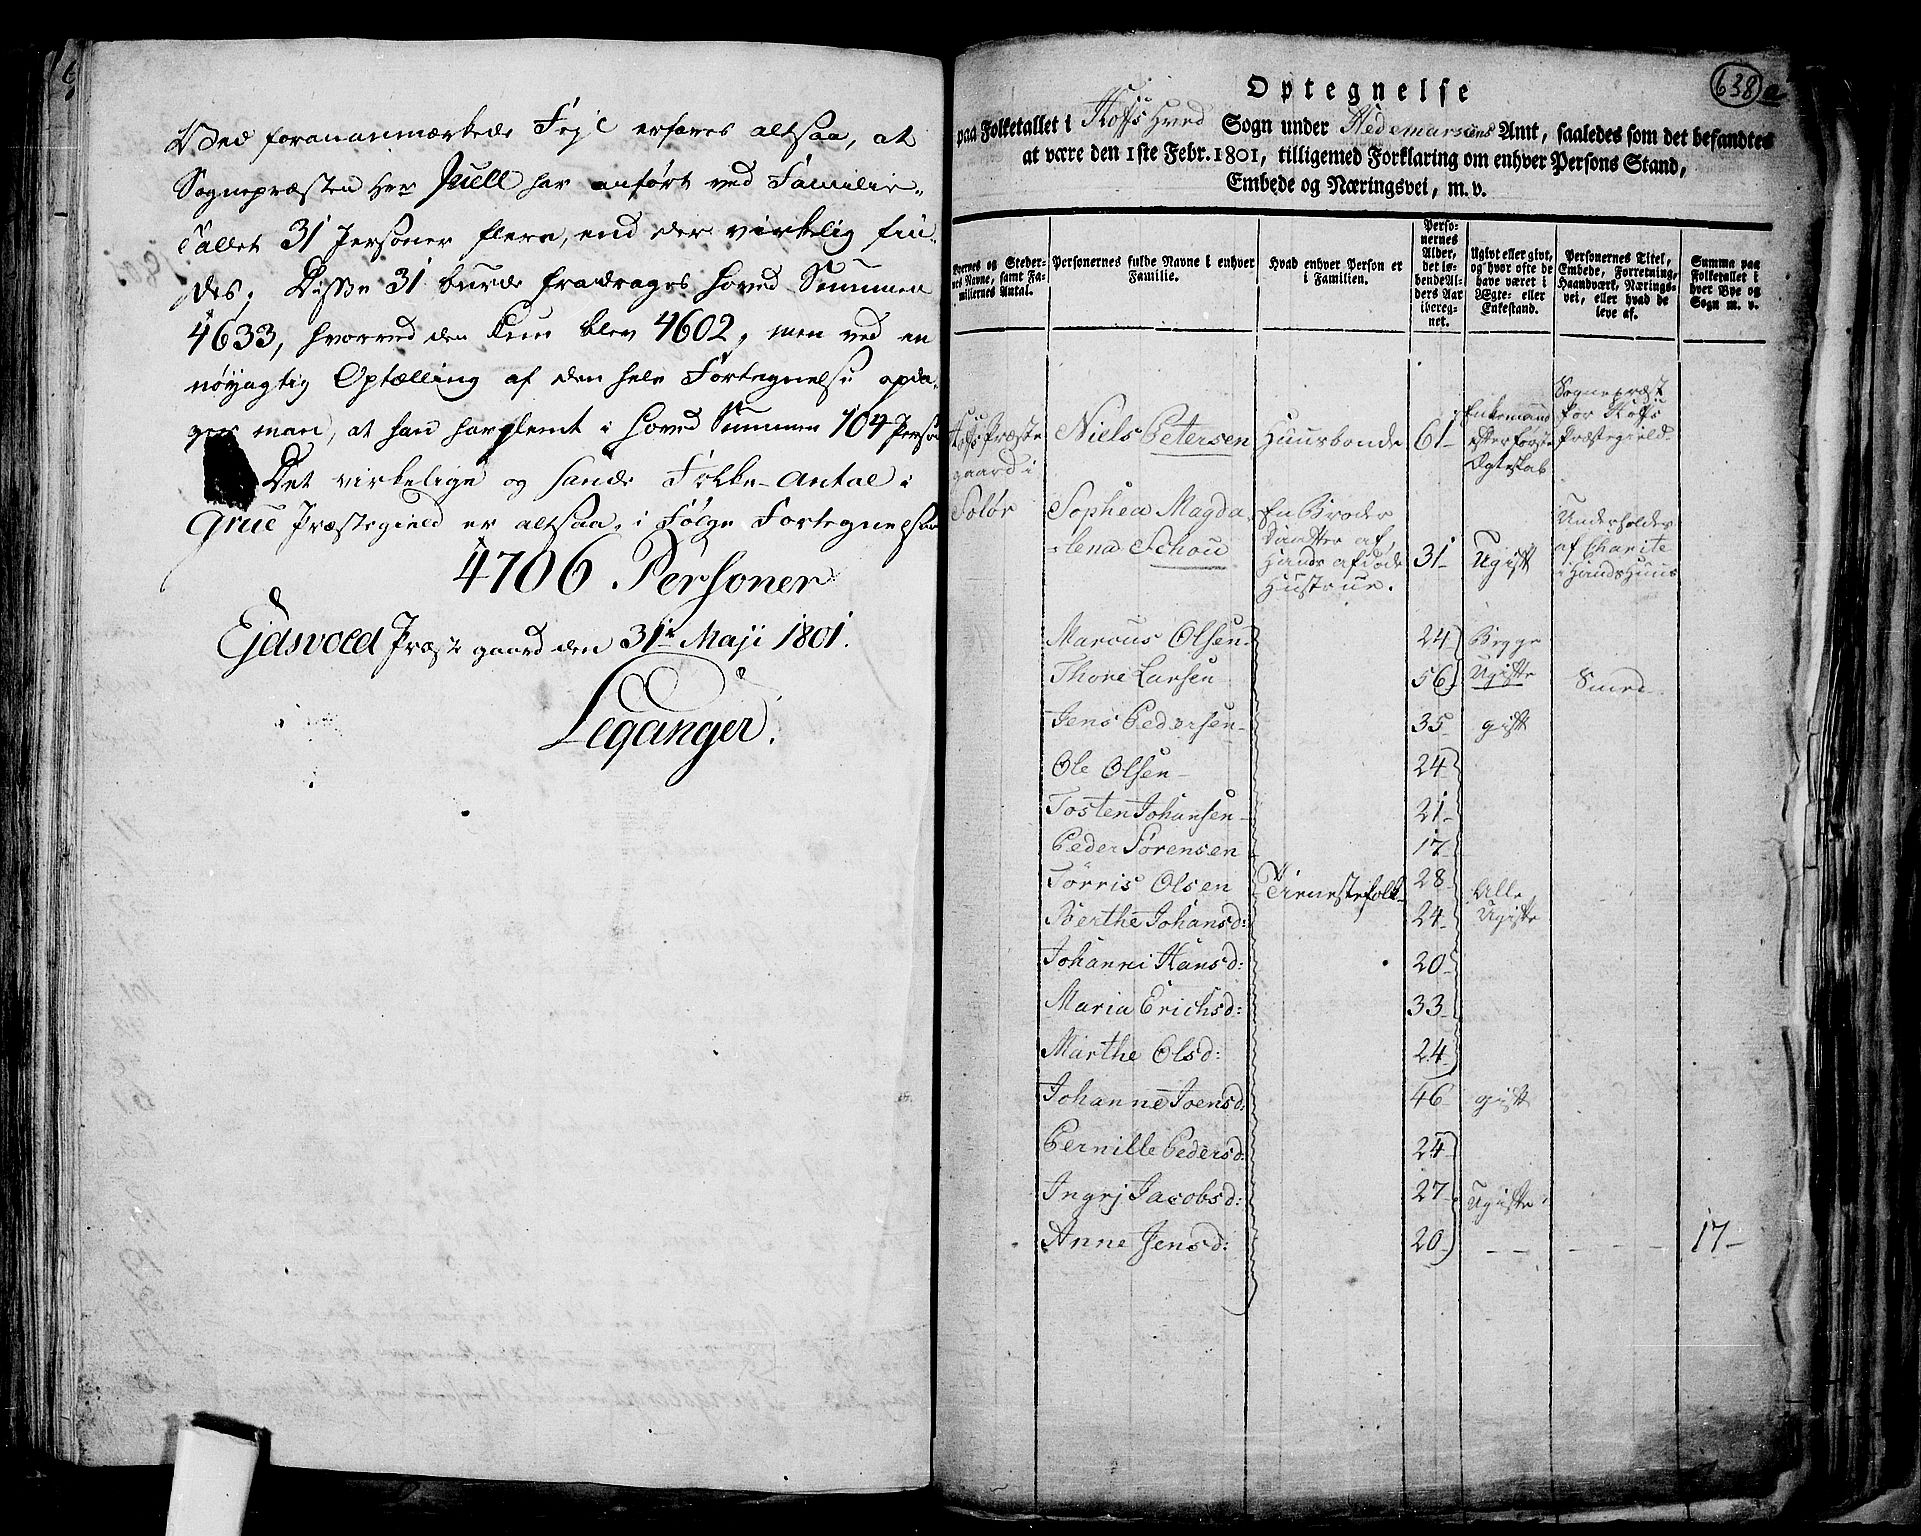 Ved forananmærkede Fejl erfares altsaa, at
Sognepræsten Her Juell har anført ved Familie-
Tallet 31 Personer flere, end der virkelig fin-
des. Disse 31 burde fradrages Hoved Summen
4633, hvorved den kun blev 4602, men ved en
nøyagtig Optælling af den hele Fortegnelse opda-
ger man, at han har glemt i Hoved Summen 104 Perso
Det virkelige og sande Folke-Antal i
Grue Præstegield er altsaa, i Følge Fortegnelsen
4706 Personer
Ejdsvold Præstegaard den 31te Maji 1801.
Leganger.
638 a
Optegnelse
paa Folketallet i Hoffs Hved Sogn under Hedemarkens Amt, saaledes som det befandtes
at være den 1ste Febr. 1801, tilligemed Forklaring om enhver Persons Stand,
Embede og Næringsvei, m. v.
Byernes og Steder-
nes Navne, samt Fa-
miliernes Antal.
Personernes fulde Navne i enhver
Familie.
Hvad enhver Person er
i Familien.
Perso-
nernes
Alder,
det lø-
bende Al-
ders Aar
ibereg-
net.
Ugivt eller givt,
og hvor ofte de
have været i
Ægte- eller
Enkestand.
Personernes Titel,
Embede, Forretning,
Haandværk, Nærings-
vei, eller hvad de
leve af.
Summa paa
Folketallet i
hver Bye og
Sogn m. v.
Hofs Præste
gaard i
Solør
Niels Petersen Huusbonde 61- Enkemand
efter første
Ægteskab
Sognepræst
for Hofs
Præstegield-
Sophea Magda-
lena Schou
En Broder
Daatter af
Hands afdøde
Hustrue.
31- Ugift
Underholdes
af Charite
i Hands Huus
Marcus Olsen 24 Begge
Thore Larsen 56 Ugifte Smed
Jens Pedersen 35 gift
Ole Olsen 24
Tosten Johansen 21
Peder Sørensen 17
Tørris Olsen Tienestefolk 28 Alle
Berthe Johansd: 24 Ugifte
Johanne Hansd: 20
Maria Erichsd: 33
Marthe Olsd: 24
Johanne Joensd: 46 gift
Pernille Pedersd: 24
Ingrj Jacobsd: 27 Ugifte
Anne Jensd: 20 17